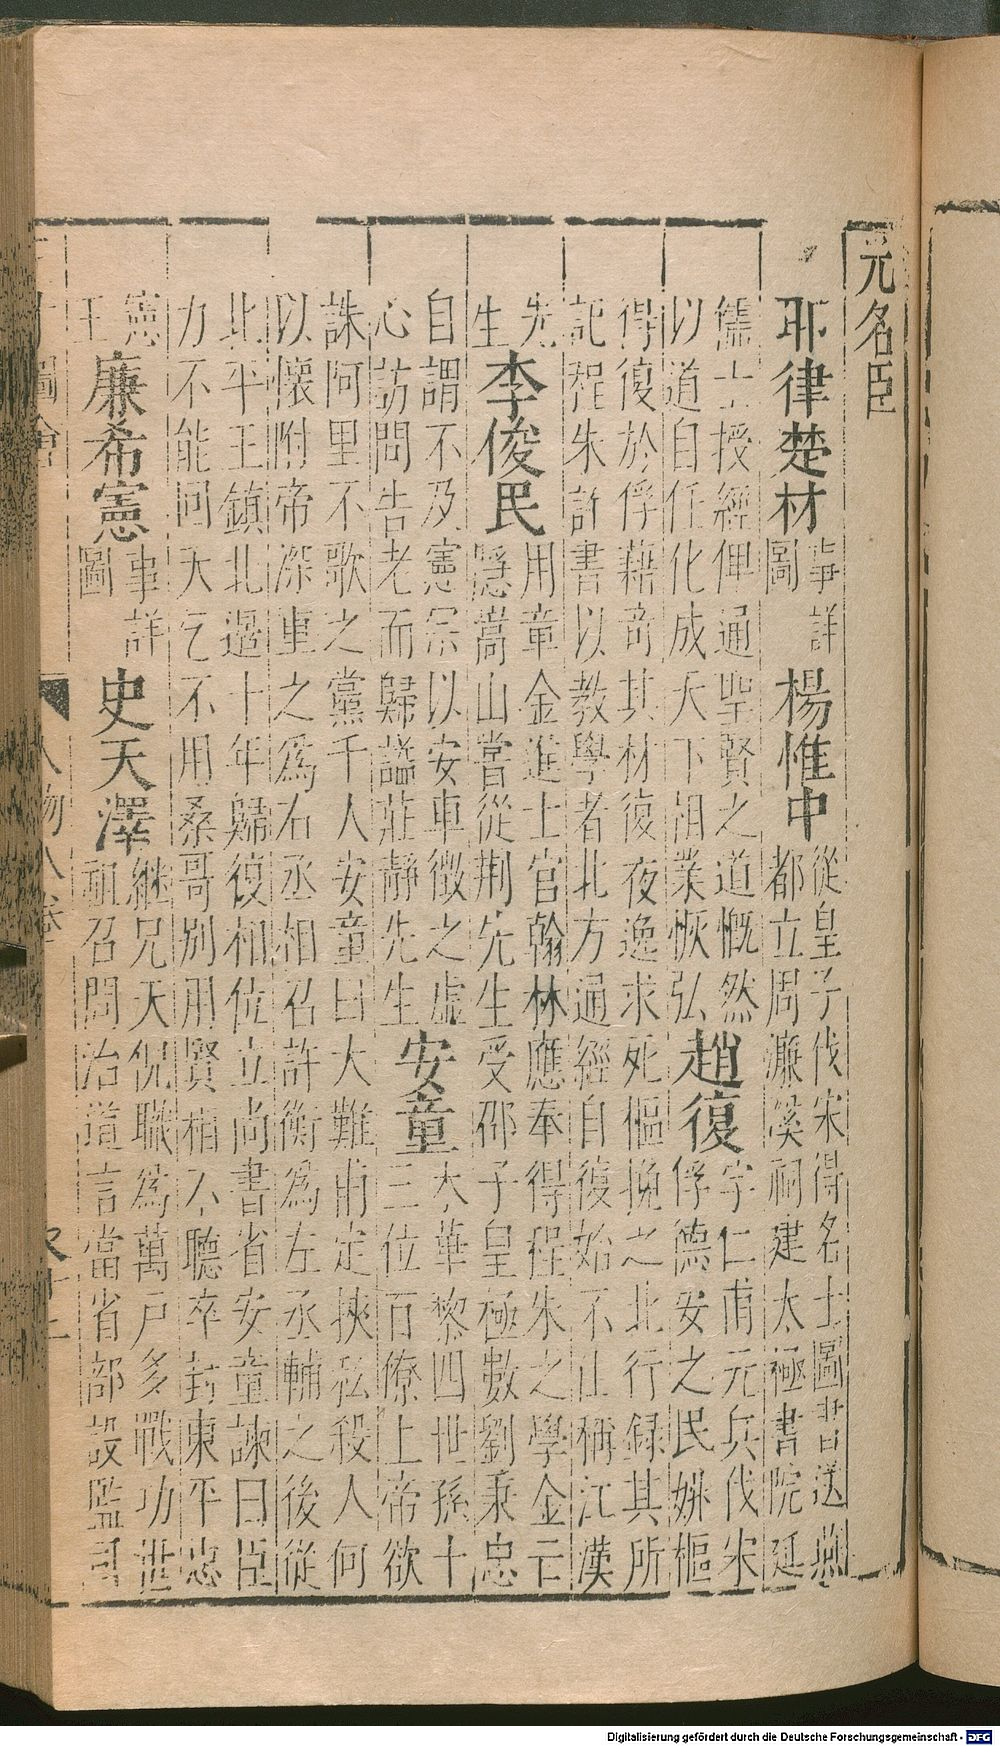 元名臣
耶律楚材
事詳
圖
楊惟中
從皇子伐宋得名士圖書送燕
都立周濂溪祠建太極書院延
儒士授經俾通聖賢之道慨然
以道自任化成天下相業恢弘
趙復
字仁甫元兵伐宋
俘德安之民姚樞
得復於俘藉奇其材復夜逸求死樞挽之北行録其所
記程朱許書以教學者北方通經自復始不止稱江漢
先
生
李俊民
用章金進士官翰林應奉得程朱之學金亡
隱嵩山當從荆先生受邵子皇極數劉秉忠
自謂不及憲宗以安車徵之虛
心訪問告老而歸謚莊靜先生
安童
木華黎四世孫十
三位百僚上帝欲
誅阿里不歌之黨千人安童曰大難甫定挾私殺人何
以懷附帝深重之爲右丞相召許衡爲左丞輔之後從
北平王鎮北邊十年歸復相位立尚書省安童諫曰臣
力不能回天乞不用桑哥別用賢相不聽卒封東平忠
憲
王
廉希憲
事詳
圖
史天澤
繼兄天倪職爲萬戶多戰功世
祖召問治道言當省部設監司
圖會
人物八卷